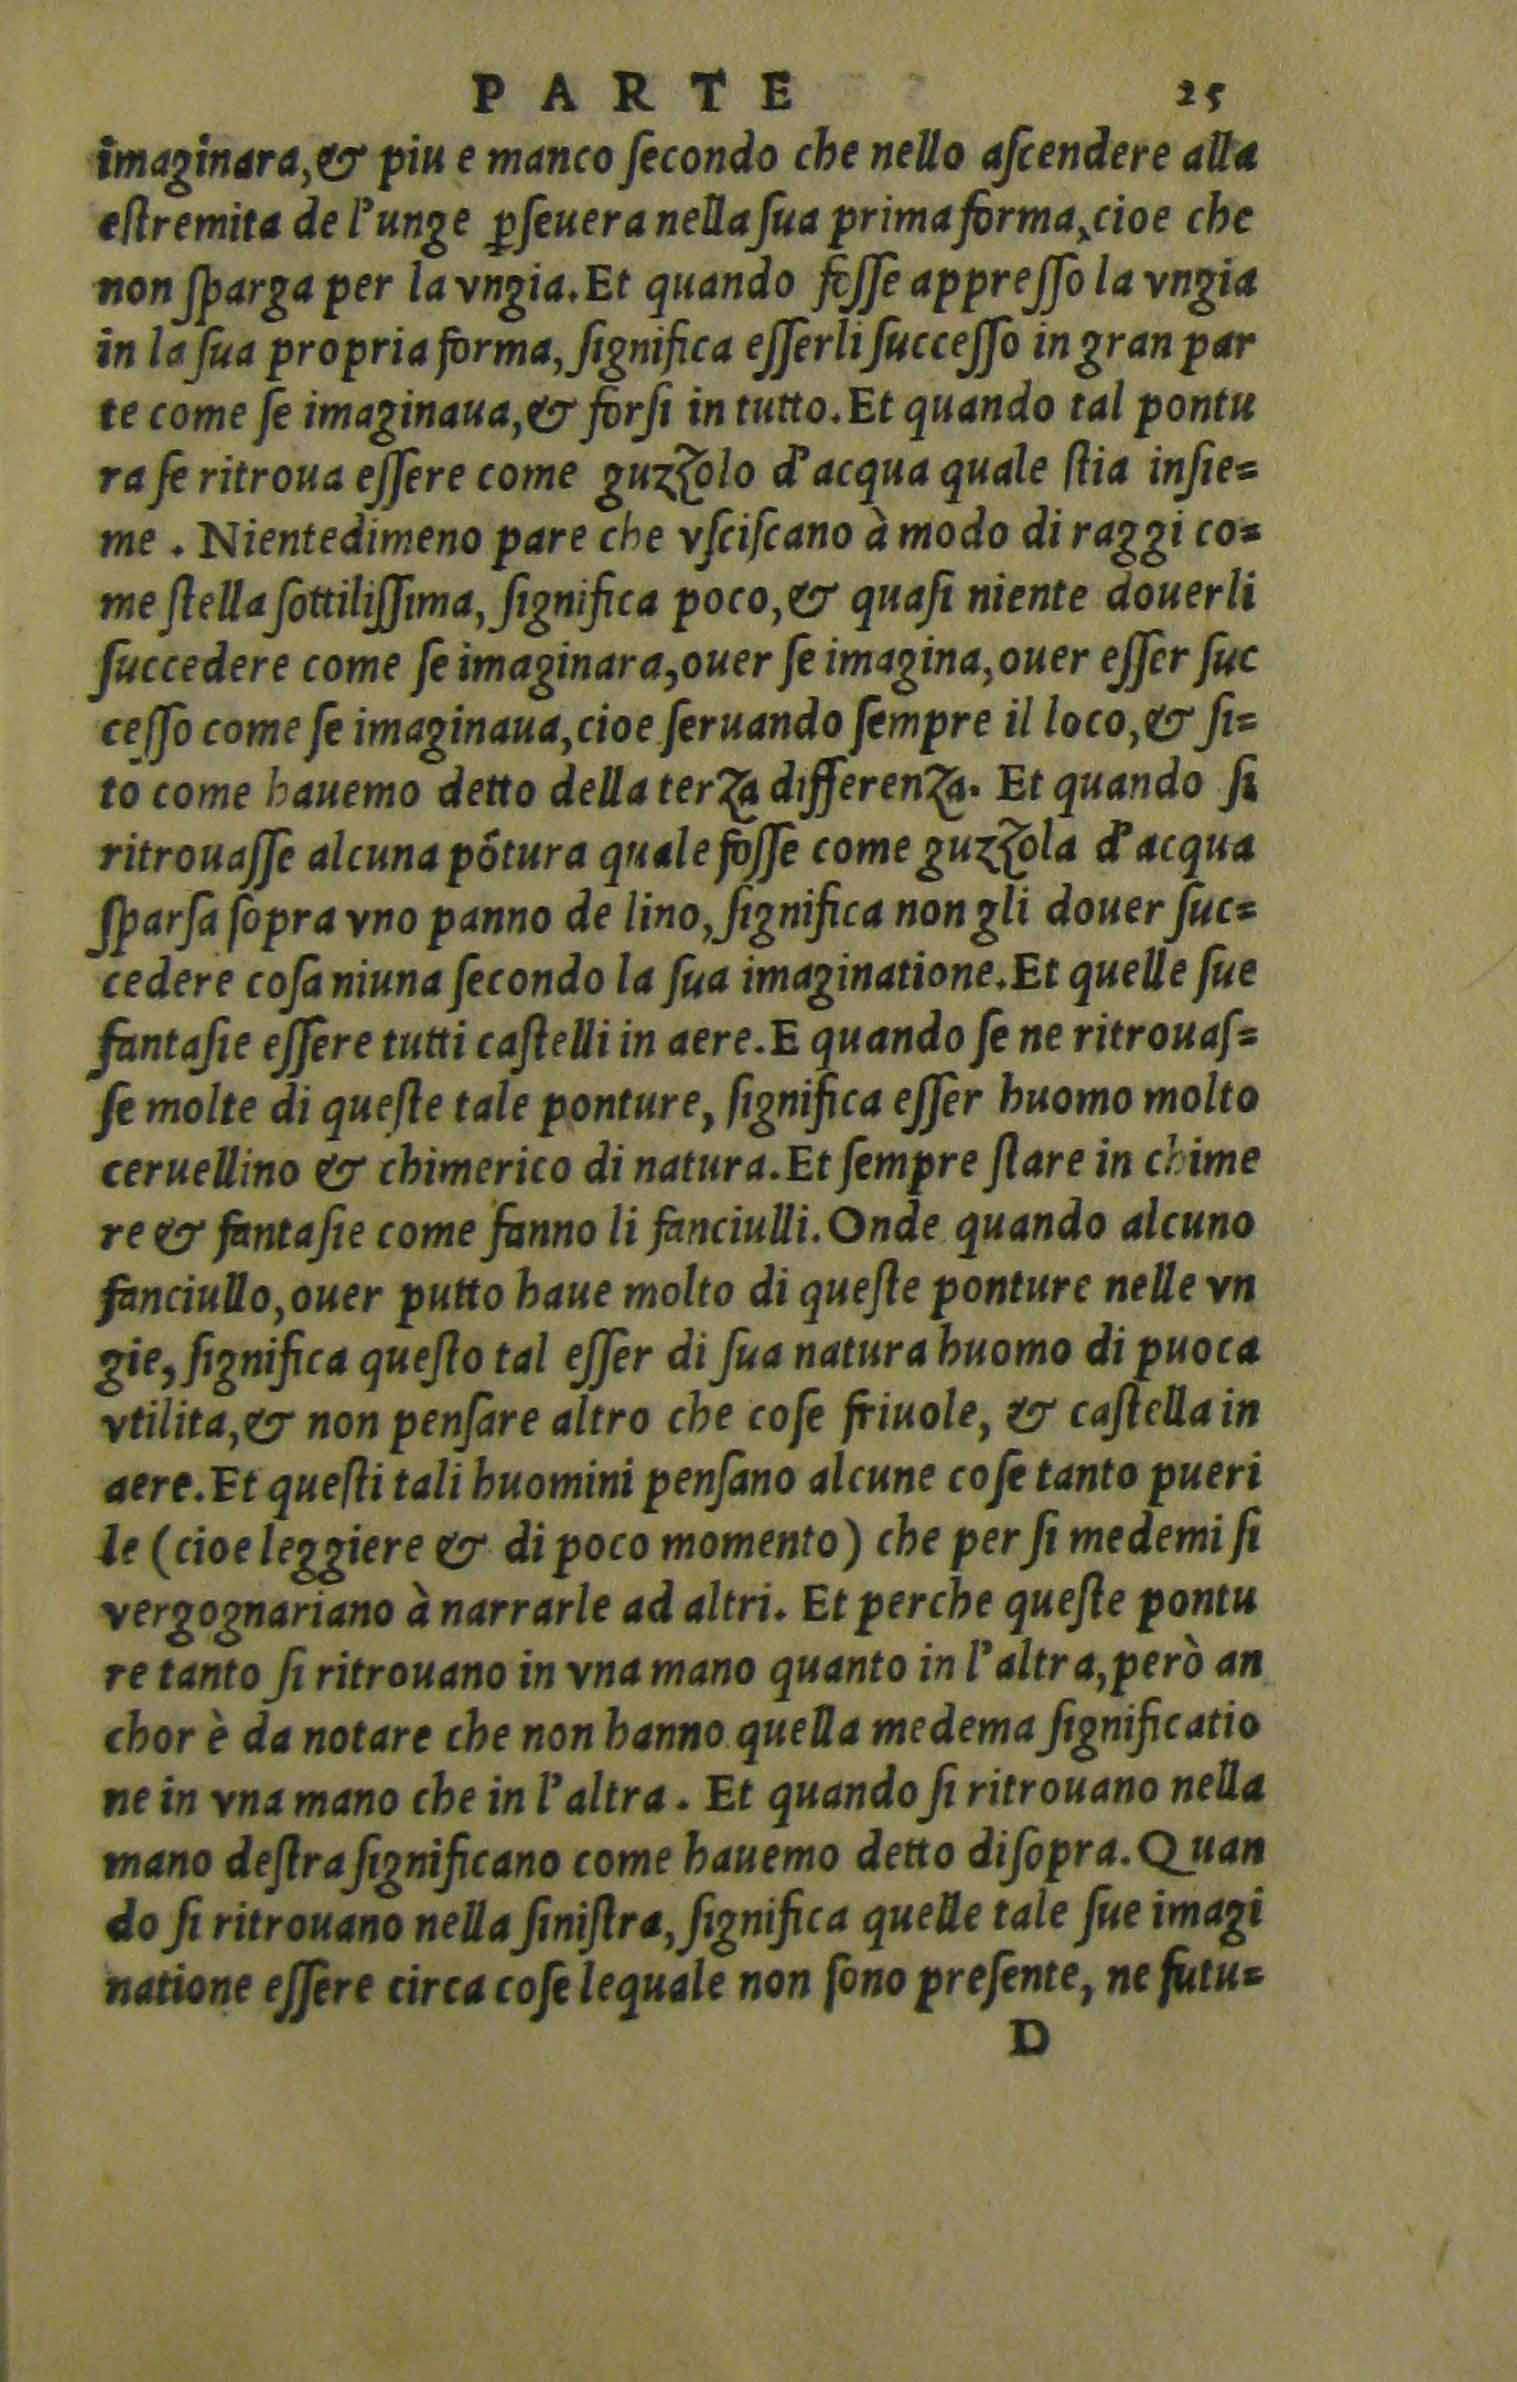 PARTE 25
imaginara, & piu e manco ſecondo che nello aſcendere alla
eſtremita de l'unge ꝑſeuera nella ſua prima forma, cioe che
non ſparga per la vngia. Et quando foſſe appreſſo la vngia
in la ſua propria forma, ſignifica eſſerli ſucceſſo in gran par
te come ſe imaginaua, & forſi in tutto. Et quando tal pontu
ra ſe ritroua eſſere come guzzolo d'acqua quale ſtia inſie=
me . Nientedimeno pare che vſciſcano à modo di raggi co=
me ſtella ſottiliſſima, ſignifica poco, & quaſi niente douerli
ſuccedere come ſe imaginara, ouer ſe imagina, ouer eſſer ſuc
ceſſo come ſe imaginaua, cioe ſeruando ſempre il loco, & ſi=
to come hauemo detto della terza differenza. Et quando ſi
ritrouaſſe alcuna pótura quale foſſe come guzzola d'acqua
ſparſa ſopra vno panno de lino, ſignifica non gli douer ſuc=
cedere coſa niuna ſecondo la ſua imaginatione. Et quelle ſue
fantaſie eſſere tutti caſtelli in aere. E quando ſe ne ritrouaſ=
ſe molte di queſte tale ponture, ſignifica eſſer huomo molto
ceruellino & chimerico di natura. Et ſempre ſtare in chime
re & fantaſie come fanno li fanciulli. Onde quando alcuno
fanciullo, ouer putto haue molto di queſte ponture nelle vn
gie, ſignifica queſto tal eſſer di ſua natura huomo di puoca
vtilita, & non penſare altro che coſe friuole, & caſtella in
aere. Et queſti tali huomini penſano alcune coſe tanto pueri
le (cioe leggiere & di poco momento) che per ſi medemi ſi
vergognariano à narrarle ad altri. Et perche queſte pontu
re tanto ſi ritrouano in vna mano quanto in l'altra, però an
chor è da notare che non hanno quella medema ſignificatio
ne in vna mano che in l'altra . Et quando ſi ritrouano nella
mano deſtra ſignificano come hauemo detto diſopra. Quan
do ſi ritrouano nella ſiniſtra, ſignifica quelle tale ſue imagi
natione eſſere circa coſe lequale non ſono preſente, ne futu=
D